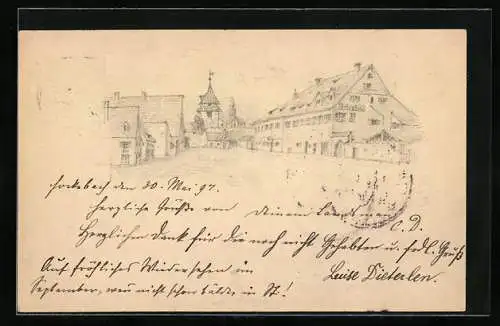 den 20. Mai 97.
herzliche Grüße von Deinem
O. D.
Herzlichen Dank für die noch nicht Gehabten u. frdl. Gruß
Auf fröhliches Wiedersehen im
September, wenn nicht schon bälder in St!
Luise Dieterlen.